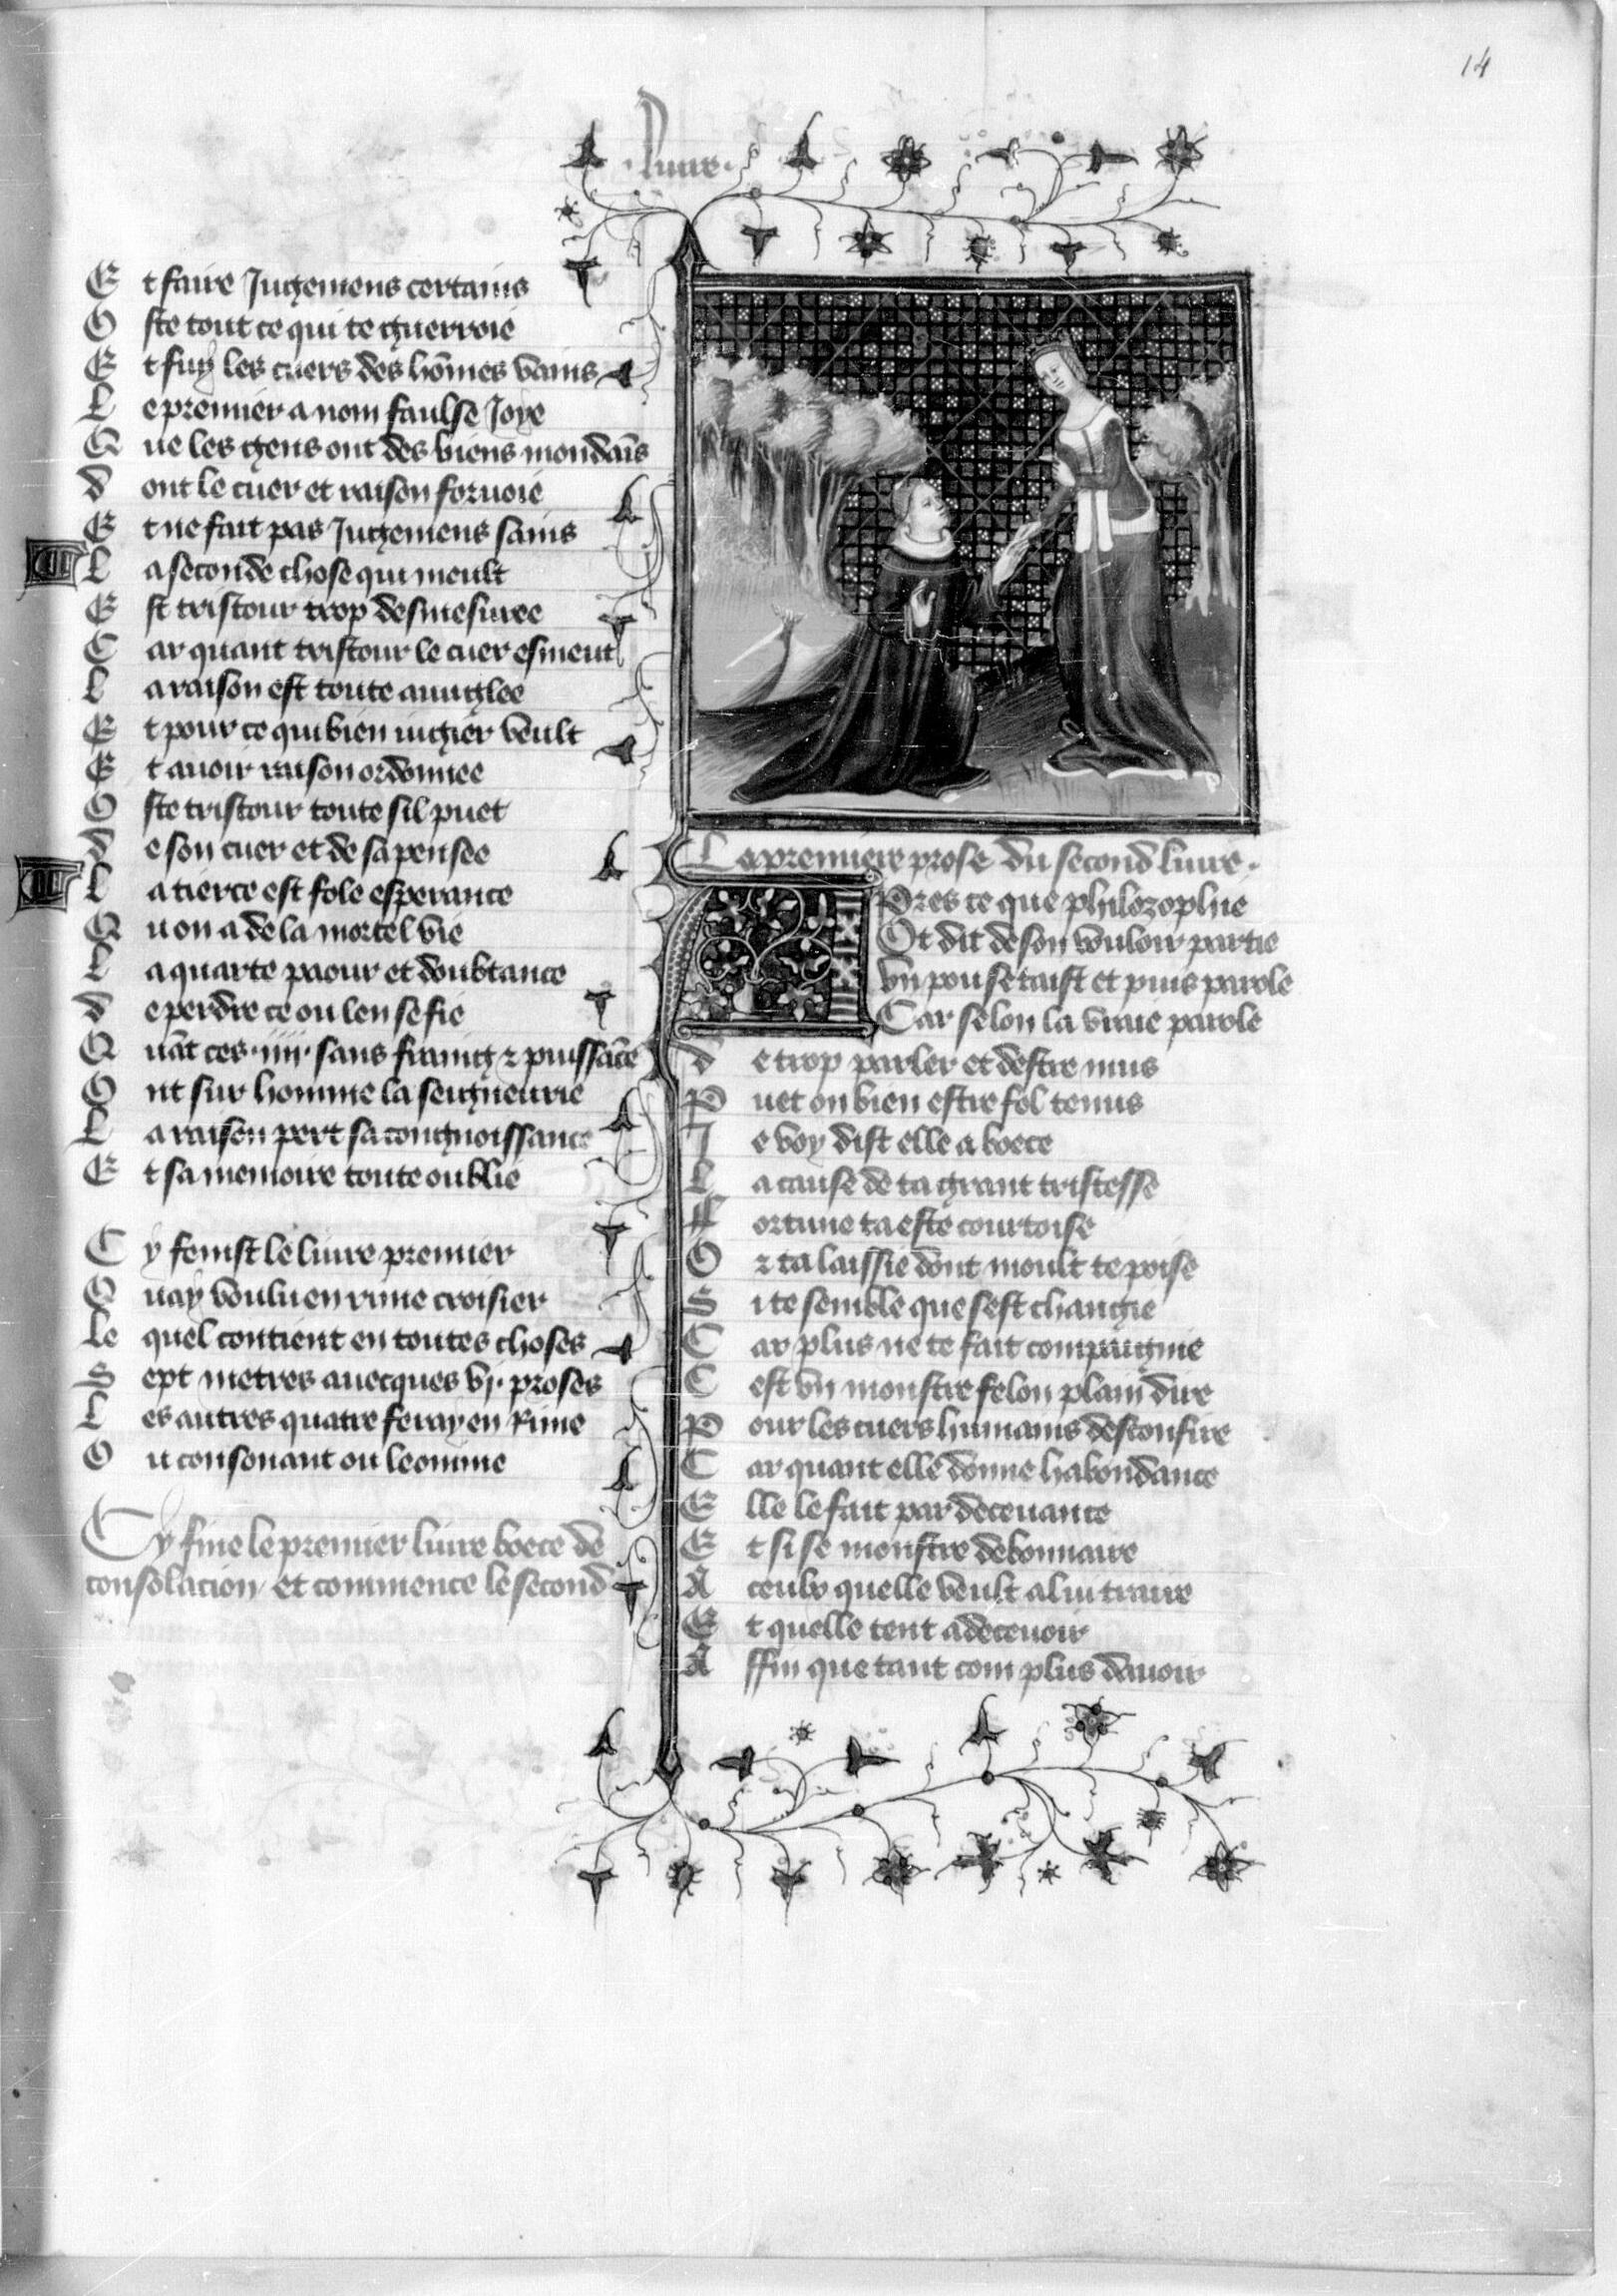 14
liure
Et faire Jugemens certains
Oste tout ce qui te guerroie
Et fuy les cuers des hōmes vains
Le premier a nom faulse Joye
Que les gens ont des biens mondaĩs
dont le cuer et raison foruoie
Et ne fait pas Jugemens sains
La seconde chose qui meult
Est tristour trop desmesuree
Car quant tristour le cuer esmeut
La raison est toute auuglee
Et pour ce qui bien iugier veult
Et auoir raison ordonnee
Oste tristour toute sil puet
de son cuer et de sa pensee
La tierce est fole esperance
Quon a de la mortel vie
La quarte paour et doubtance
de perdre ce ou len se fie
Quāt ces .iiii. sans fraing ⁊ puissāce
Ont sur homme la seigneurie
La raison pert sa congnoissance
Et sa memoire toute oublie
Cy fenist le liure premier
Quay voulu en rime croisier
Le quel contient en toutes choses
Sept metres auecques vj. proses
Les autres quatre feray en Rime
Ou consonant ou leonime
Cy fine le premier liure boece de
consolacion et commence le second
La premiere prose du second liure.
Apres ce que philozophie
Ot dit de son vouloir partie
vn pou se taist et puis parole
Car selon la vraie parole
de trop parler et destre mus
Puet on bien estre fol tenus
Je voy dist elle a boece
La cause de ta grant tristesse
Fortune ta este courtoise
O⁊ ta laissie dont moult te poise
Si te semble que sest changie
Car plus ne te fait compaignie
Cest vn monstre felon plain dire
Pour les cuers humains desconfire
Car quant elle donne habondance
Elle le fait par deceuance
Et si se monstre debonnaire
A ceulx quelle veult a lui traire
Et quelle tent a deceuoir
Affin que tant com plus dauoir